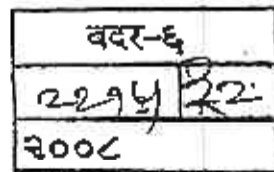 वदर-६
२२१५ २८
२००८